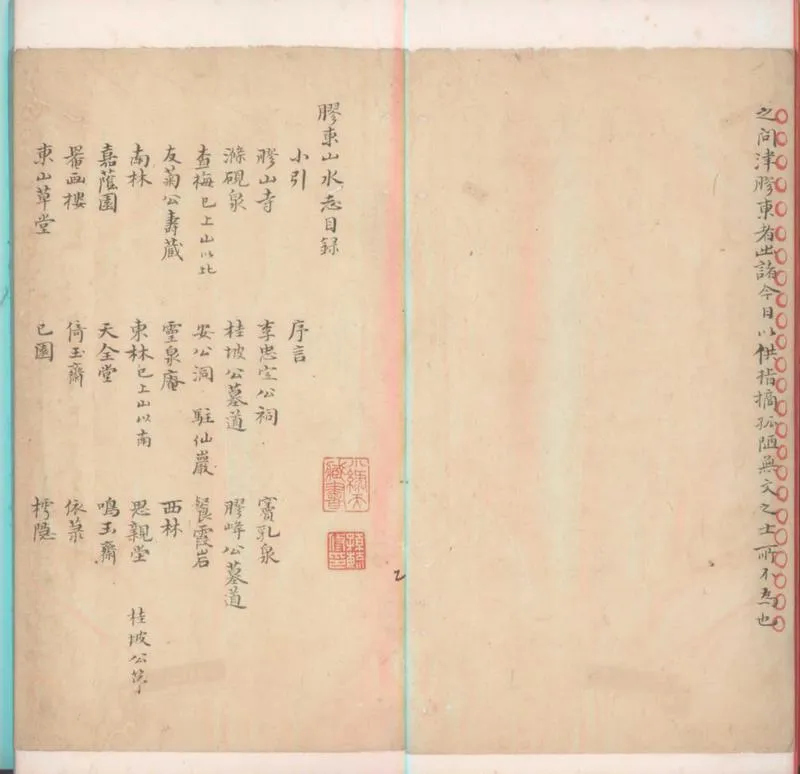 之問津膠東者出諸今日以供指摘孤陋無文之士所不為也
膠東山水志目録
小引 序言
膠山寺 李忠定公祠 竇乳泉
滌硯泉 桂坡公墓道 膠峰公墓道
查梅已上山以北 安公洞 駐仙巖 餐霞岩
友菊公壽藏 靈泉庵 西林
南林 東林已上山以南 思親堂 桂坡公
嘉蔭園 天全堂 鳴玉齋
罨画樓 倚玉齋 依菉
東山草堂 已園 樗隠